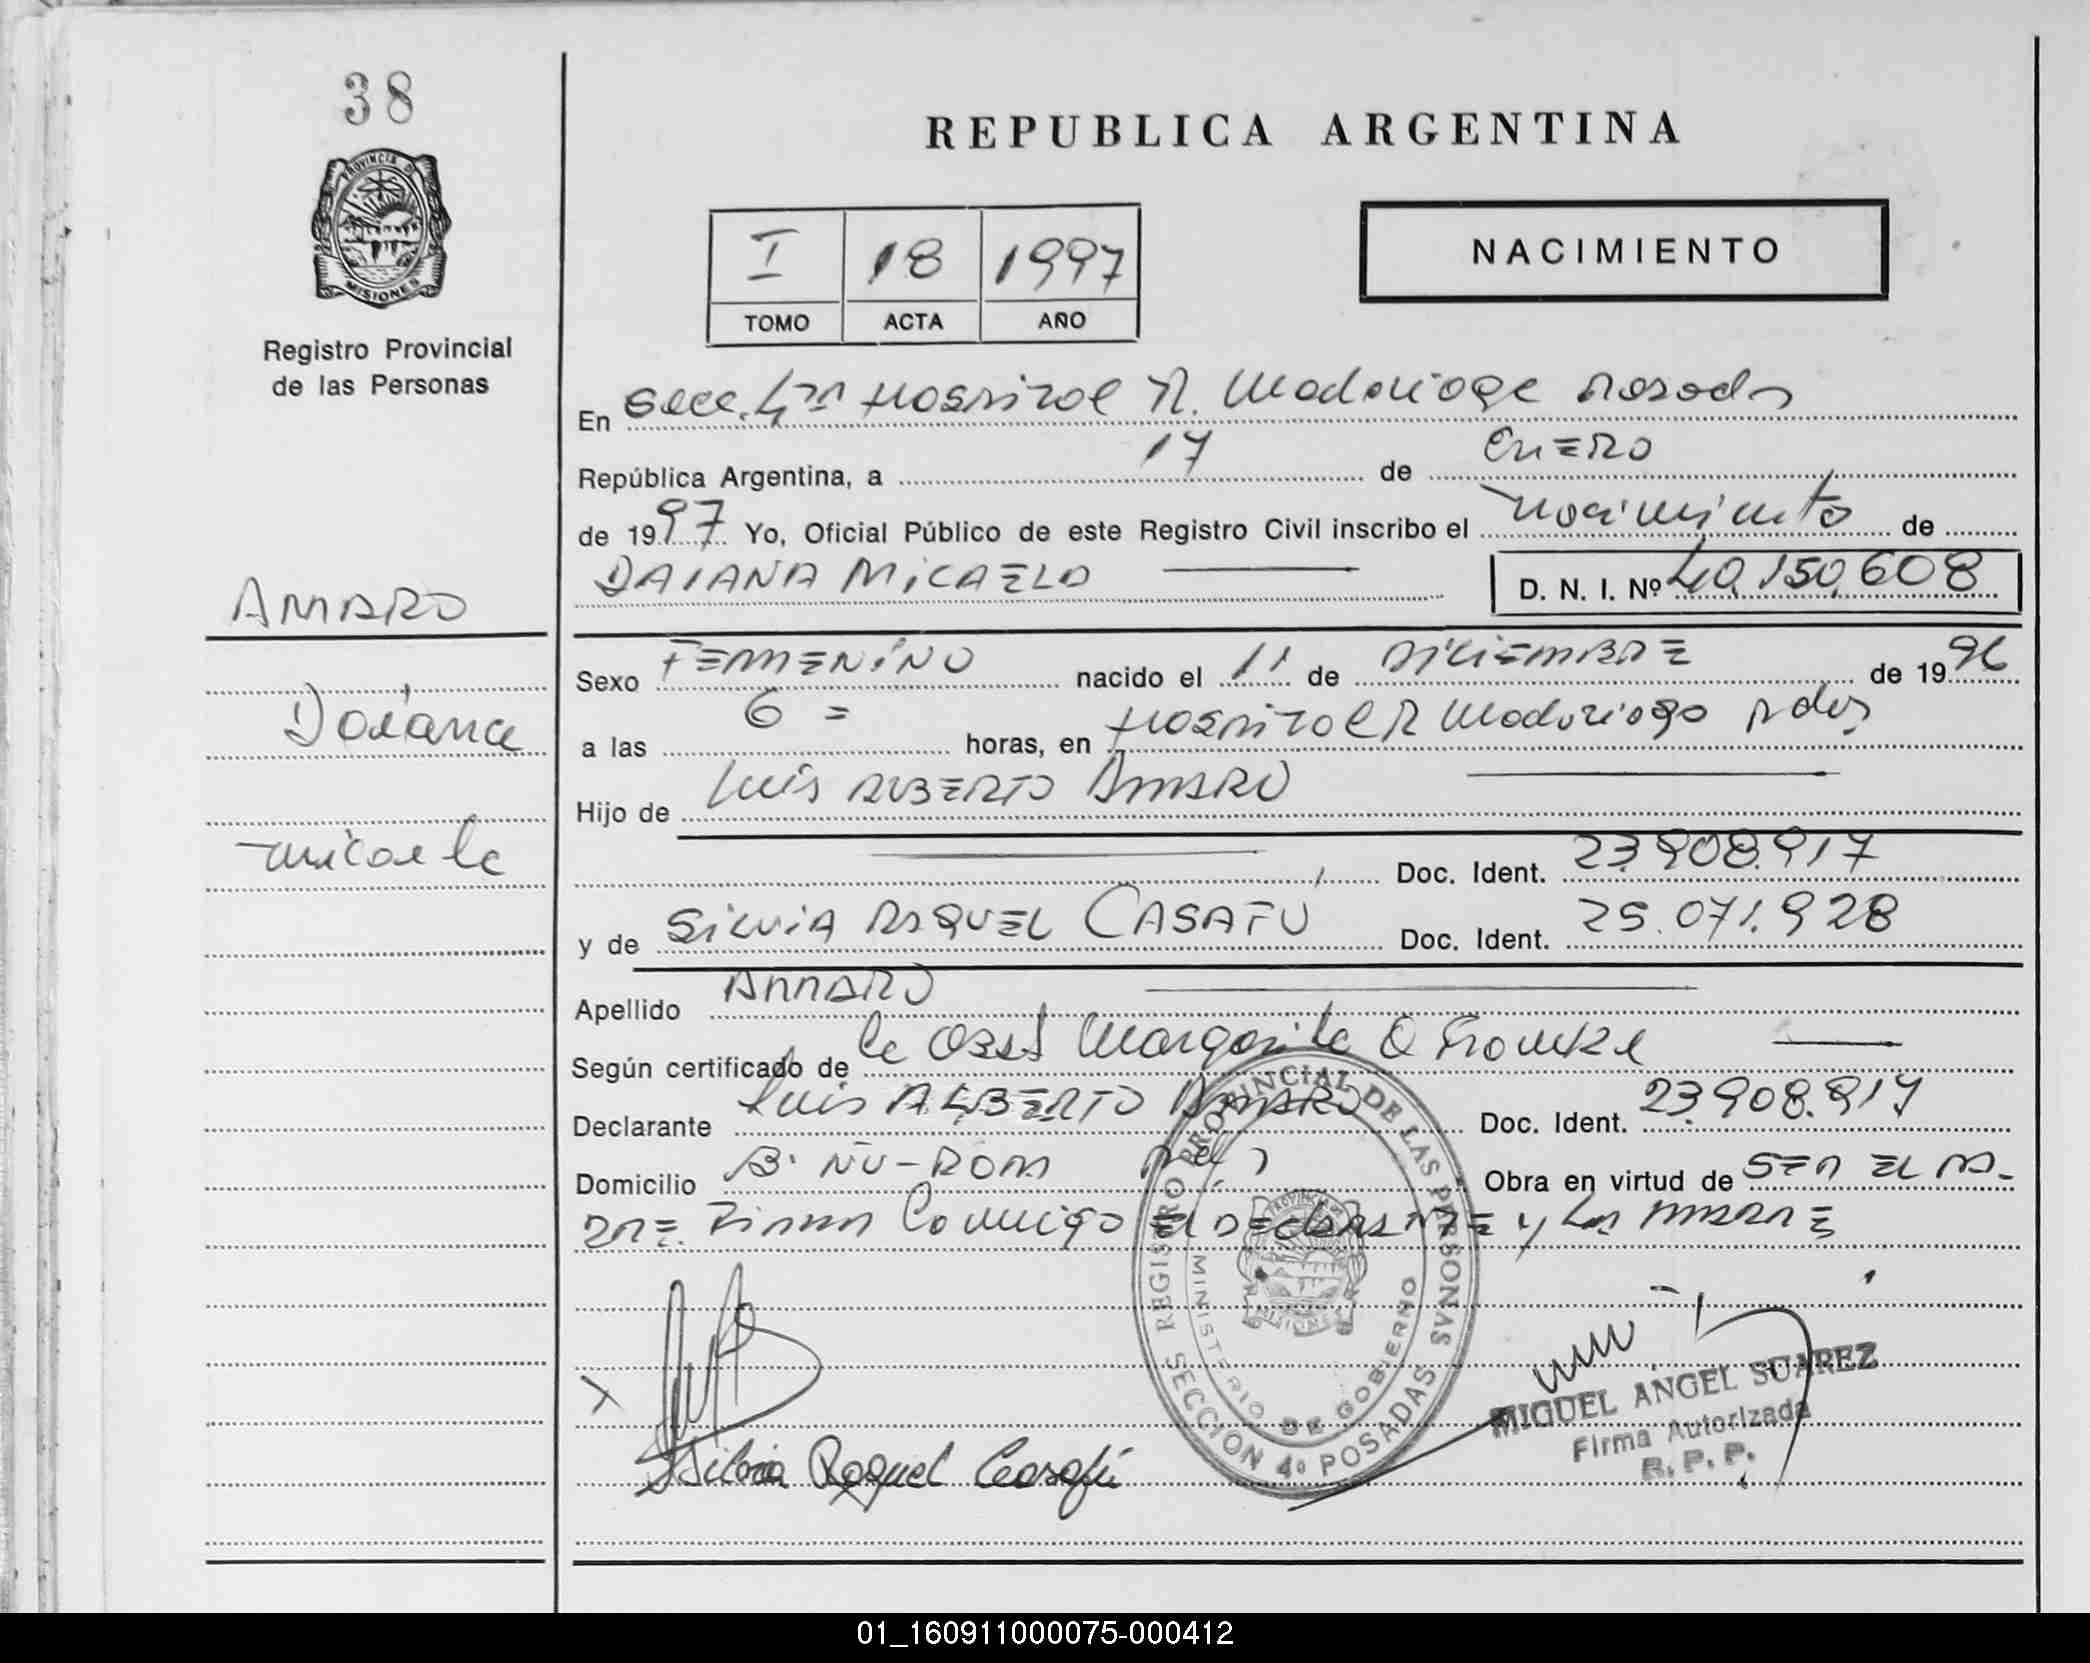 38
PROVINCIA DE
MISIONES
Registro Provincial
de las Personas
AMARO
Daiana
Micaela
REPUBLICA ARGENTINA
I 18 1997
TOMO ACTA AÑO
NACIMIENTO
En Secc. 4ta Hospital R. Madariaga Posadas
República Argentina, a 17 de Enero
de 1997 Yo, Oficial Público de este Registro Civil inscribo el nacimiento de
DAIANA MICAELA D. N. I. Nº 40.150.608
Sexo FEMENINO nacido el 11 de DICIEMBRE de 1996
a las 6 = horas, en Hospital R Madariaga Pdas
Hijo de Luis ALBERTO AMARO
Doc. Ident. 23.908.917
y de SILVIA RAQUEL CASAFU Doc. Ident. 25.071.928
Apellido AMARO
Según certificado de la Obst Margarita
Declarante Luis ALBERTO AMARO Doc. Ident. 23.908.917
Domicilio B. ÑU-PORA Obra en virtud de SER EL PA-
DRE. Firma Conmigo El DECLARANTE y LA MADRE
Silvia Raquel Casafú
REGISTRO PROVINCIAL DE LAS PERSONAS
MINISTERIO DE GOBIERNO
SECCION 4º POSADAS
MIGUEL ANGEL SUAREZ
Firma Autorizada
R. P. P.
01_160911000075-000412